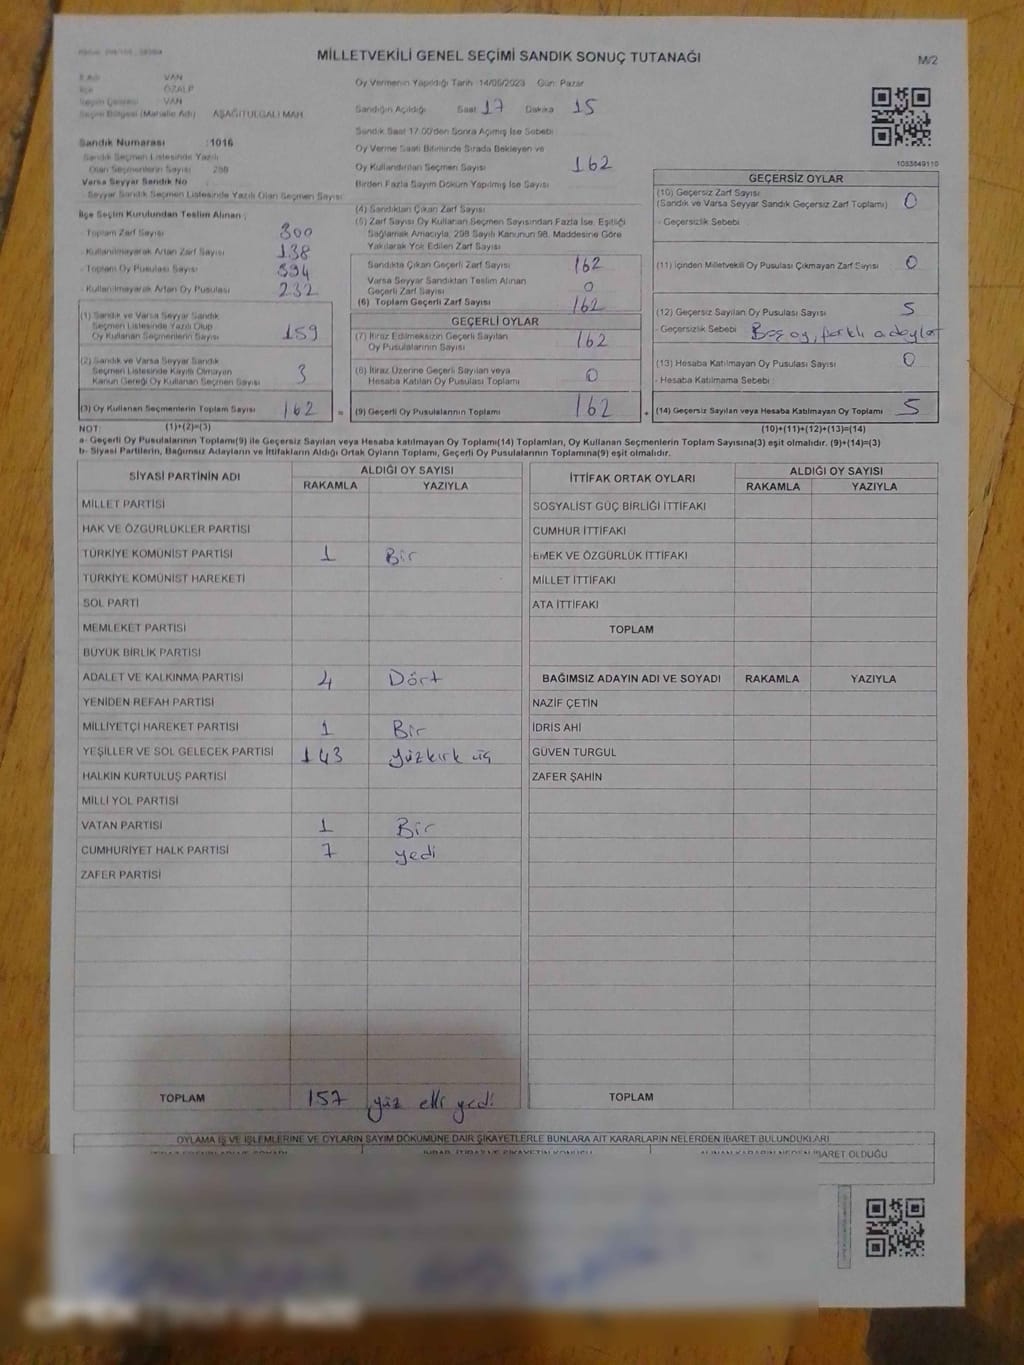 MİLLETVEKİLİ GENEL SEÇİMİ SANDIK SONUÇ TUTANAĞI
M/2
VAN
ÖZALP
VAN
Seçim Bölgesi (Mahalle Adı) AŞAĞITULGALI MAH.
Sandık Numarası :1016
Sandık Seçmen Listesinde Yazılı
Olan Seçmenlerin Sayısı 298
Varsa Seyyar Sandık No
Seyyar Sandık Seçmen Listesinde Yazılı Olan Seçmen Sayısı
Oy Vermenin Yapıldığı Tarih 14/05/2023 Gün: Pazar
Sandığın Açıldığı Saat 17 Dakika 15
Sandık Saat 17.00'den Sonra Açılmış İse Sebebi
Oy Verme Saati Bitiminde Sırada Bekleyen ve
Oy Kullandırılan Seçmen Sayısı 162
Birden Fazla Sayım Döküm Yapılmış İse Sayısı
1053649110
İlçe Seçim Kurulundan Teslim Alınan ;
- Toplam Zarf Sayısı 300
- Kullanılmayarak Artan Zarf Sayısı 138
- Toplam Oy Pusulası Sayısı 394
- Kullanılmayarak Artan Oy Pusulası 232
(1) Sandık ve Varsa Seyyar Sandık
Seçmen Listesinde Yazılı Olup
Oy Kullanan Seçmenlerin Sayısı 159
(2) Sandık ve Varsa Seyyar Sandık
Seçmen Listesinde Kayıtlı Olmayan
Kanun Gereği Oy Kullanan Seçmen Sayısı 3
(3) Oy Kullanan Seçmenlerin Toplam Sayısı 162
(4) Sandıktan Çıkan Zarf Sayısı
(5) Zarf Sayısı Oy Kullanan Seçmen Sayısından Fazla İse, Eşitliği
Sağlamak Amacıyla, 298 Sayılı Kanunun 98. Maddesine Göre
Yakılarak Yok Edilen Zarf Sayısı
Sandıkta Çıkan Geçerli Zarf Sayısı 162
Varsa Seyyar Sandıktan Teslim Alınan
Geçerli Zarf Sayısı 0
(6) Toplam Geçerli Zarf Sayısı 162
GEÇERLİ OYLAR
(7) İtiraz Edilmeksizin Geçerli Sayılan
Oy Pusulalarının Sayısı 162
(8) İtiraz Üzerine Geçerli Sayılan veya
Hesaba Katılan Oy Pusulası Toplamı 0
= (9) Geçerli Oy Pusulalarının Toplamı 162
GEÇERSİZ OYLAR
(10) Geçersiz Zarf Sayısı
(Sandık ve Varsa Seyyar Sandık Geçersiz Zarf Toplamı) 0
- Geçersizlik Sebebi
(11) İçinden Milletvekili Oy Pusulası Çıkmayan Zarf Sayısı 0
(12) Geçersiz Sayılan Oy Pusulası Sayısı 5
- Geçersizlik Sebebi Boş oy, farklı adaylar
(13) Hesaba Katılmayan Oy Pusulası Sayısı 0
- Hesaba Katılmama Sebebi
+ (14) Geçersiz Sayılan veya Hesaba Katılmayan Oy Toplamı 5
NOT: (1)+(2)=(3)
(10)+(11)+(12)+(13)=(14)
a- Geçerli Oy Pusulalarının Toplamı(9) ile Geçersiz Sayılan veya Hesaba katılmayan Oy Toplamı(14) Toplamları, Oy Kullanan Seçmenlerin Toplam Sayısına(3) eşit olmalıdır. (9)+(14)=(3)
b- Siyasi Partilerin, Bağımsız Adayların ve İttifakların Aldığı Ortak Oyların Toplamı, Geçerli Oy Pusulalarının Toplamına(9) eşit olmalıdır.
SİYASİ PARTİNİN ADI ALDIĞI OY SAYISI
RAKAMLA YAZIYLA
MİLLET PARTİSİ
HAK VE ÖZGÜRLÜKLER PARTİSİ
TÜRKİYE KOMÜNİST PARTİSİ 1 Bir
TÜRKİYE KOMÜNİST HAREKETİ
SOL PARTİ
MEMLEKET PARTİSİ
BÜYÜK BİRLİK PARTİSİ
ADALET VE KALKINMA PARTİSİ 4 Dört
YENİDEN REFAH PARTİSİ
MİLLİYETÇİ HAREKET PARTİSİ 1 Bir
YEŞİLLER VE SOL GELECEK PARTİSİ 143 yüzkırk üç
HALKIN KURTULUŞ PARTİSİ
MİLLİ YOL PARTİSİ
VATAN PARTİSİ 1 Bir
CUMHURİYET HALK PARTİSİ 7 yedi
ZAFER PARTİSİ
TOPLAM 157 yüz elli yedi
İTTİFAK ORTAK OYLARI ALDIĞI OY SAYISI
RAKAMLA YAZIYLA
SOSYALİST GÜÇ BİRLİĞİ İTTİFAKI
CUMHUR İTTİFAKI
EMEK VE ÖZGÜRLÜK İTTİFAKI
MİLLET İTTİFAKI
ATA İTTİFAKI
TOPLAM
BAĞIMSIZ ADAYIN ADI VE SOYADI RAKAMLA YAZIYLA
NAZİF ÇETİN
İDRİS AHİ
GÜVEN TURGUL
ZAFER ŞAHİN
TOPLAM
OYLAMA İŞ VE İŞLEMLERİNE VE OYLARIN SAYIM DÖKÜMÜNE DAİR ŞİKAYETLERLE BUNLARA AİT KARARLARIN NELERDEN İBARET BULUNDUKLARI
İBARET OLDUĞU